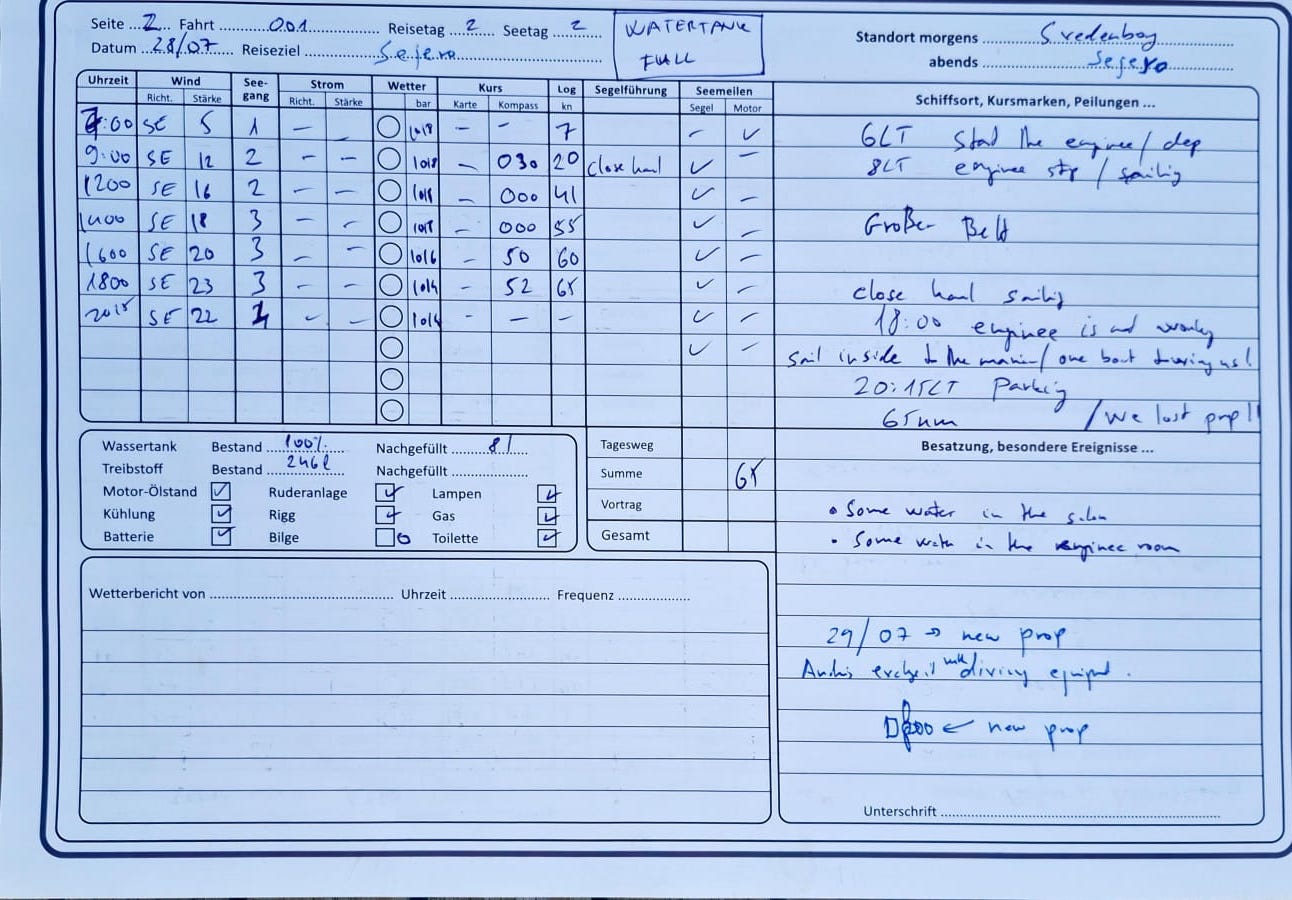 Seite 2 Fahrt 001 Reisetag 2 Seetag 2
WATERTANK
FULL
Standort morgens Svedenborg
Datum 28/07 Reiseziel Sejerø
abends Sejerø
Uhrzeit Wind See-gang Strom Wetter Kurs Log Segelführung Seemeilen Schiffsort, Kursmarken, Peilungen ...
Richt. Stärke Richt. Stärke bar Karte Kompass kn Segel Motor
7:00 SE 5 1 – – 1018 – – 7 – ✓ 6LT the enginee / dep
9:00 SE 12 2 – – 1018 – 030 20 close haul ✓ – 8LT enginee stp / sailing
1200 SE 16 2 – – 1018 – 000 41 ✓ –
1400 SE 18 3 – – 1017 – 000 55 ✓ – Großer Belt
1600 SE 20 3 – – 1016 – 50 60 ✓ –
1800 SE 23 3 – – 1014 – 52 65 ✓ – close haul sailing
2015 SE 22 – – 1014 – – – ✓ – 18:00 enginee is
✓ – sail inside the / one boat us!
20:15LT Parking
65nm /We lost prop!!
Wassertank Bestand 100% Nachgefüllt
Treibstoff Bestand 246l Nachgefüllt
Motor-Ölstand ✓ Ruderanlage ✓ Lampen ✓
Kühlung ✓ Rigg ✓ Gas ✓
Batterie ✓ Bilge Toilette ✓
Tagesweg
Summe 65
Vortrag
Gesamt
Besatzung, besondere Ereignisse ...
• Some water in the salon
• Some water in the enginee room
Wetterbericht von Uhrzeit Frequenz
29/07 → new prop
with diving
← new prop
Unterschrift